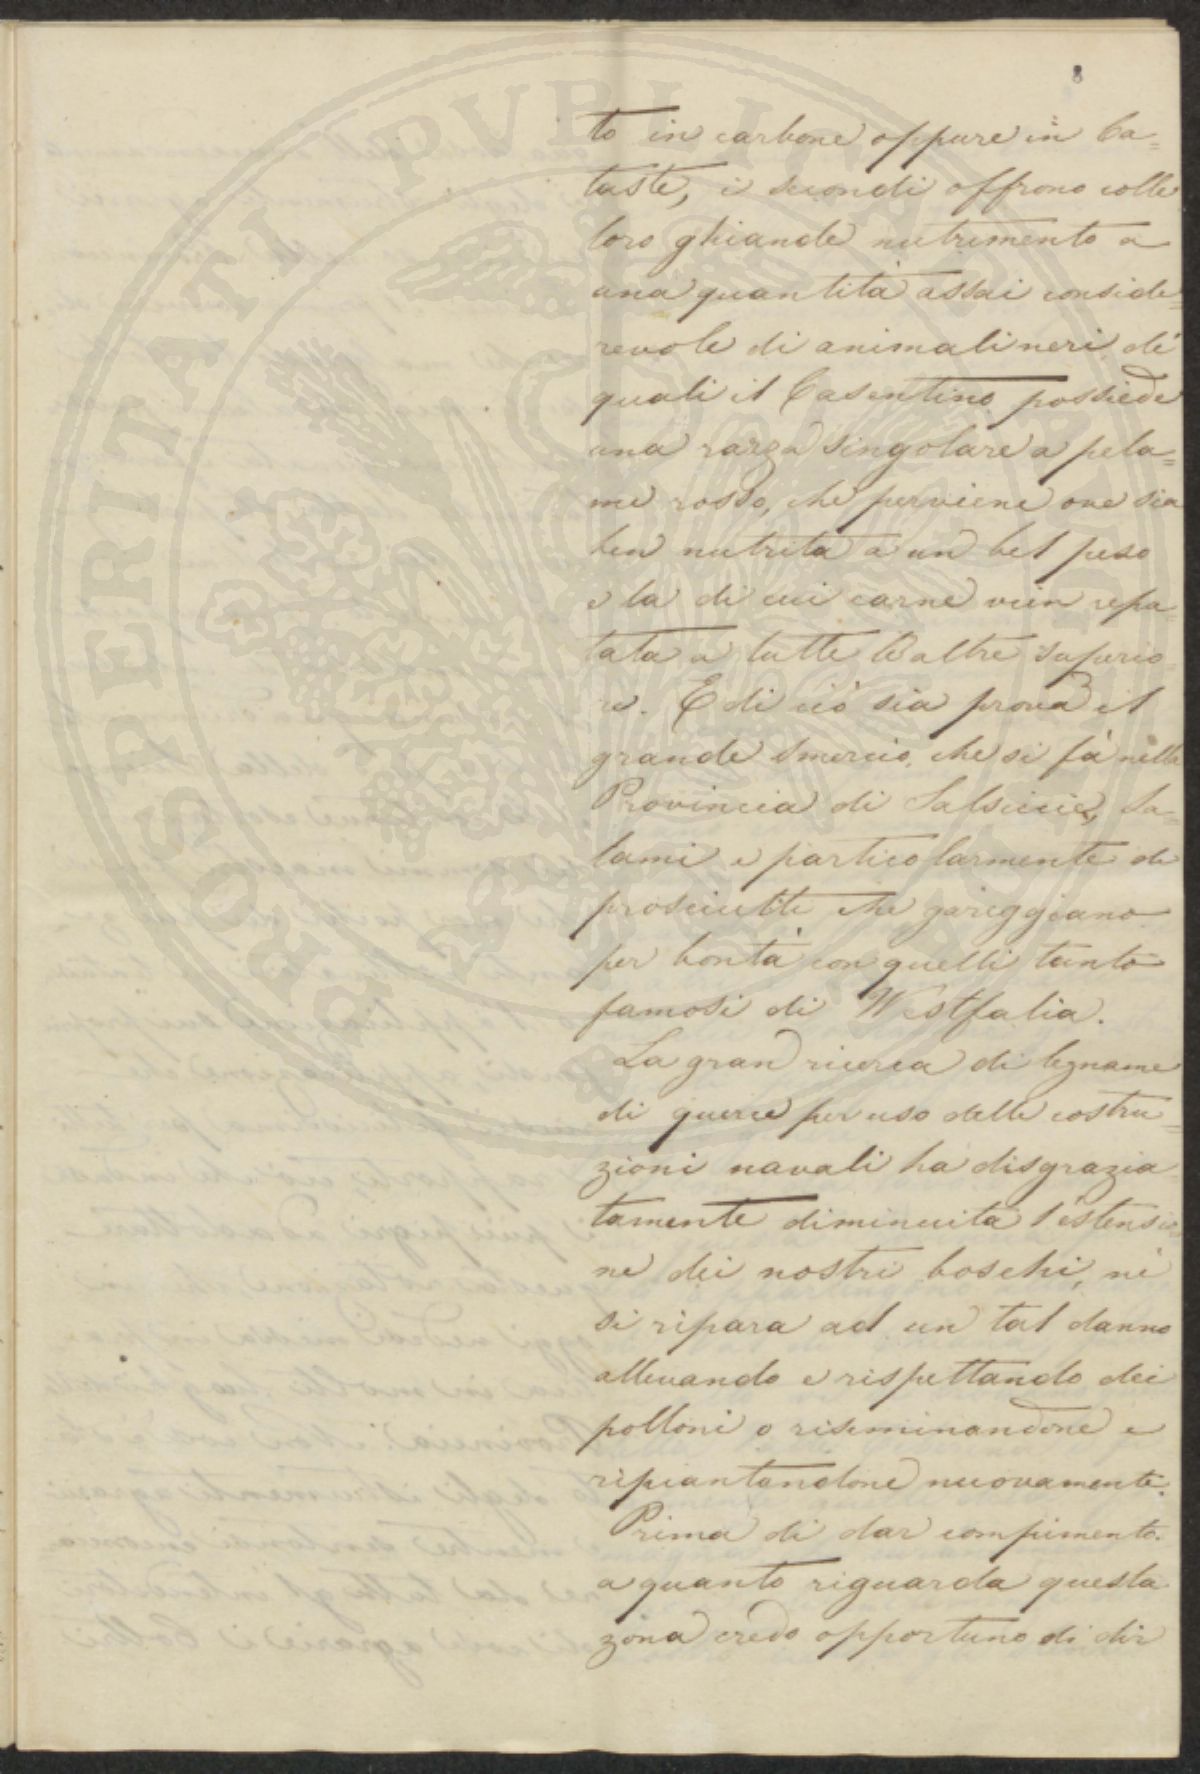 8
to in carbone oppure in Ca=
taste, i secondi offrono colle
loro ghiande nutrimento a
una quantità assai conside=
revole di animali neri, de'
quali il Casentino possiede
una razza singolare a pela=
me rosso, che perviene ove sia
ben nutrita a un bel peso
e la di cui carne vien repu
tata a tutte le altre superio
re. E di ciò sia prova il
grande smercio, che si fà nella
Provincia di Salsiccie, Sa=
lami e particolarmente di
prosciutti che gareggiano
per bontà con quelli tanto
famosi di Westfalia.
La gran ricerca di legname
di querce per uso delle costru=
zioni navali ha disgrazia
tamente diminuita l'estensio
ne dei nostri boschi, nè
si ripara ad un tal danno
allevando e rispettando dei
polloni o riseminandone e
ripiantandone nuovamente.
Prima di dar compimento
a quanto riguarda questa
zona credo opportuno di dir
PROSPERITATI PVBLICAE